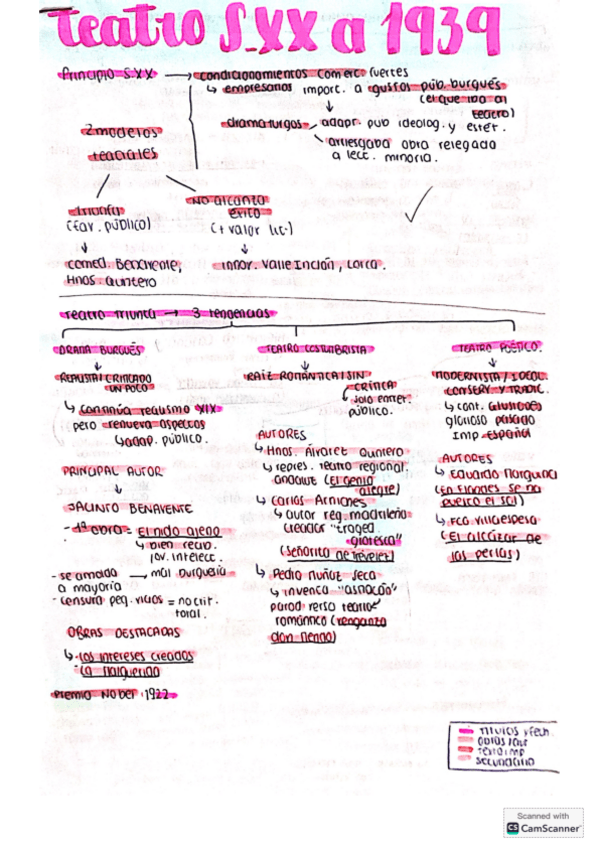 Teatro S.XX a 1939
Principio S.XX → condicionamientos comerc. fuertes
↳ empresarios import. a gustos púb. burgués
(el que iba al
teatro)
dramaturgos adapt. pub ideolog. y estét.
arriesgaba obra relegada
a lect. minoria.
2 modelos
teatrales
triunfa
(fav. público)
no alcanza
éxito
(+ valor lit.)
comed. Benavente,
Hnos. Quintero
innov. Valle Inclán, Lorca.
Teatro triunfa → 3 tendencias
DRAMA BURGUÉS
REALISTA/CRITICADO
UN POCO
↳ continúa realismo XIX
pero renueva aspectos
↳ adap. público.
PRINCIPAL AUTOR
JACINTO BENAVENTE
- 1ª obra = El nido ajeno
↳ bien recib.
- se amolda → mal burguesía
a mayoría
- censura peq. vicios = no crit.
total.
OBRAS DESTACADAS
↳ - Los intereses creados
- La malquerida
Premio Nobel 1922
TEATRO COSTUMBRISTA
RAIZ ROMÁNTICA/SIN
CRÍTICA
solo entret.
público.
AUTORES
↳ Hnos. Álvarez Quintero
↳ repres. teatro regional.
andaluz (El genio
alegre)
↳ Carlos Arniches
↳ autor reg. madrileño
creador "traged.
grotesca"
(Señorita de Trévelez)
↳ Pedro Muñoz Seca
↳ inventa "astracán"
parod. verso teatro
romántico (venganza
don Mendo)
TEATRO POÉTICO
MODERNISTA/IDEOL.
CONSERV. Y TRADIC.
↳ cont. alusiones
glorioso pasado
Imp. español
AUTORES
↳ Eduardo Marquina
(En Flandes se ha
puesto el sol)
↳ Fco Villaespesa
(El alcázar de
las perlas)
títulos y fech.
secundario
Scanned with
CS CamScanner